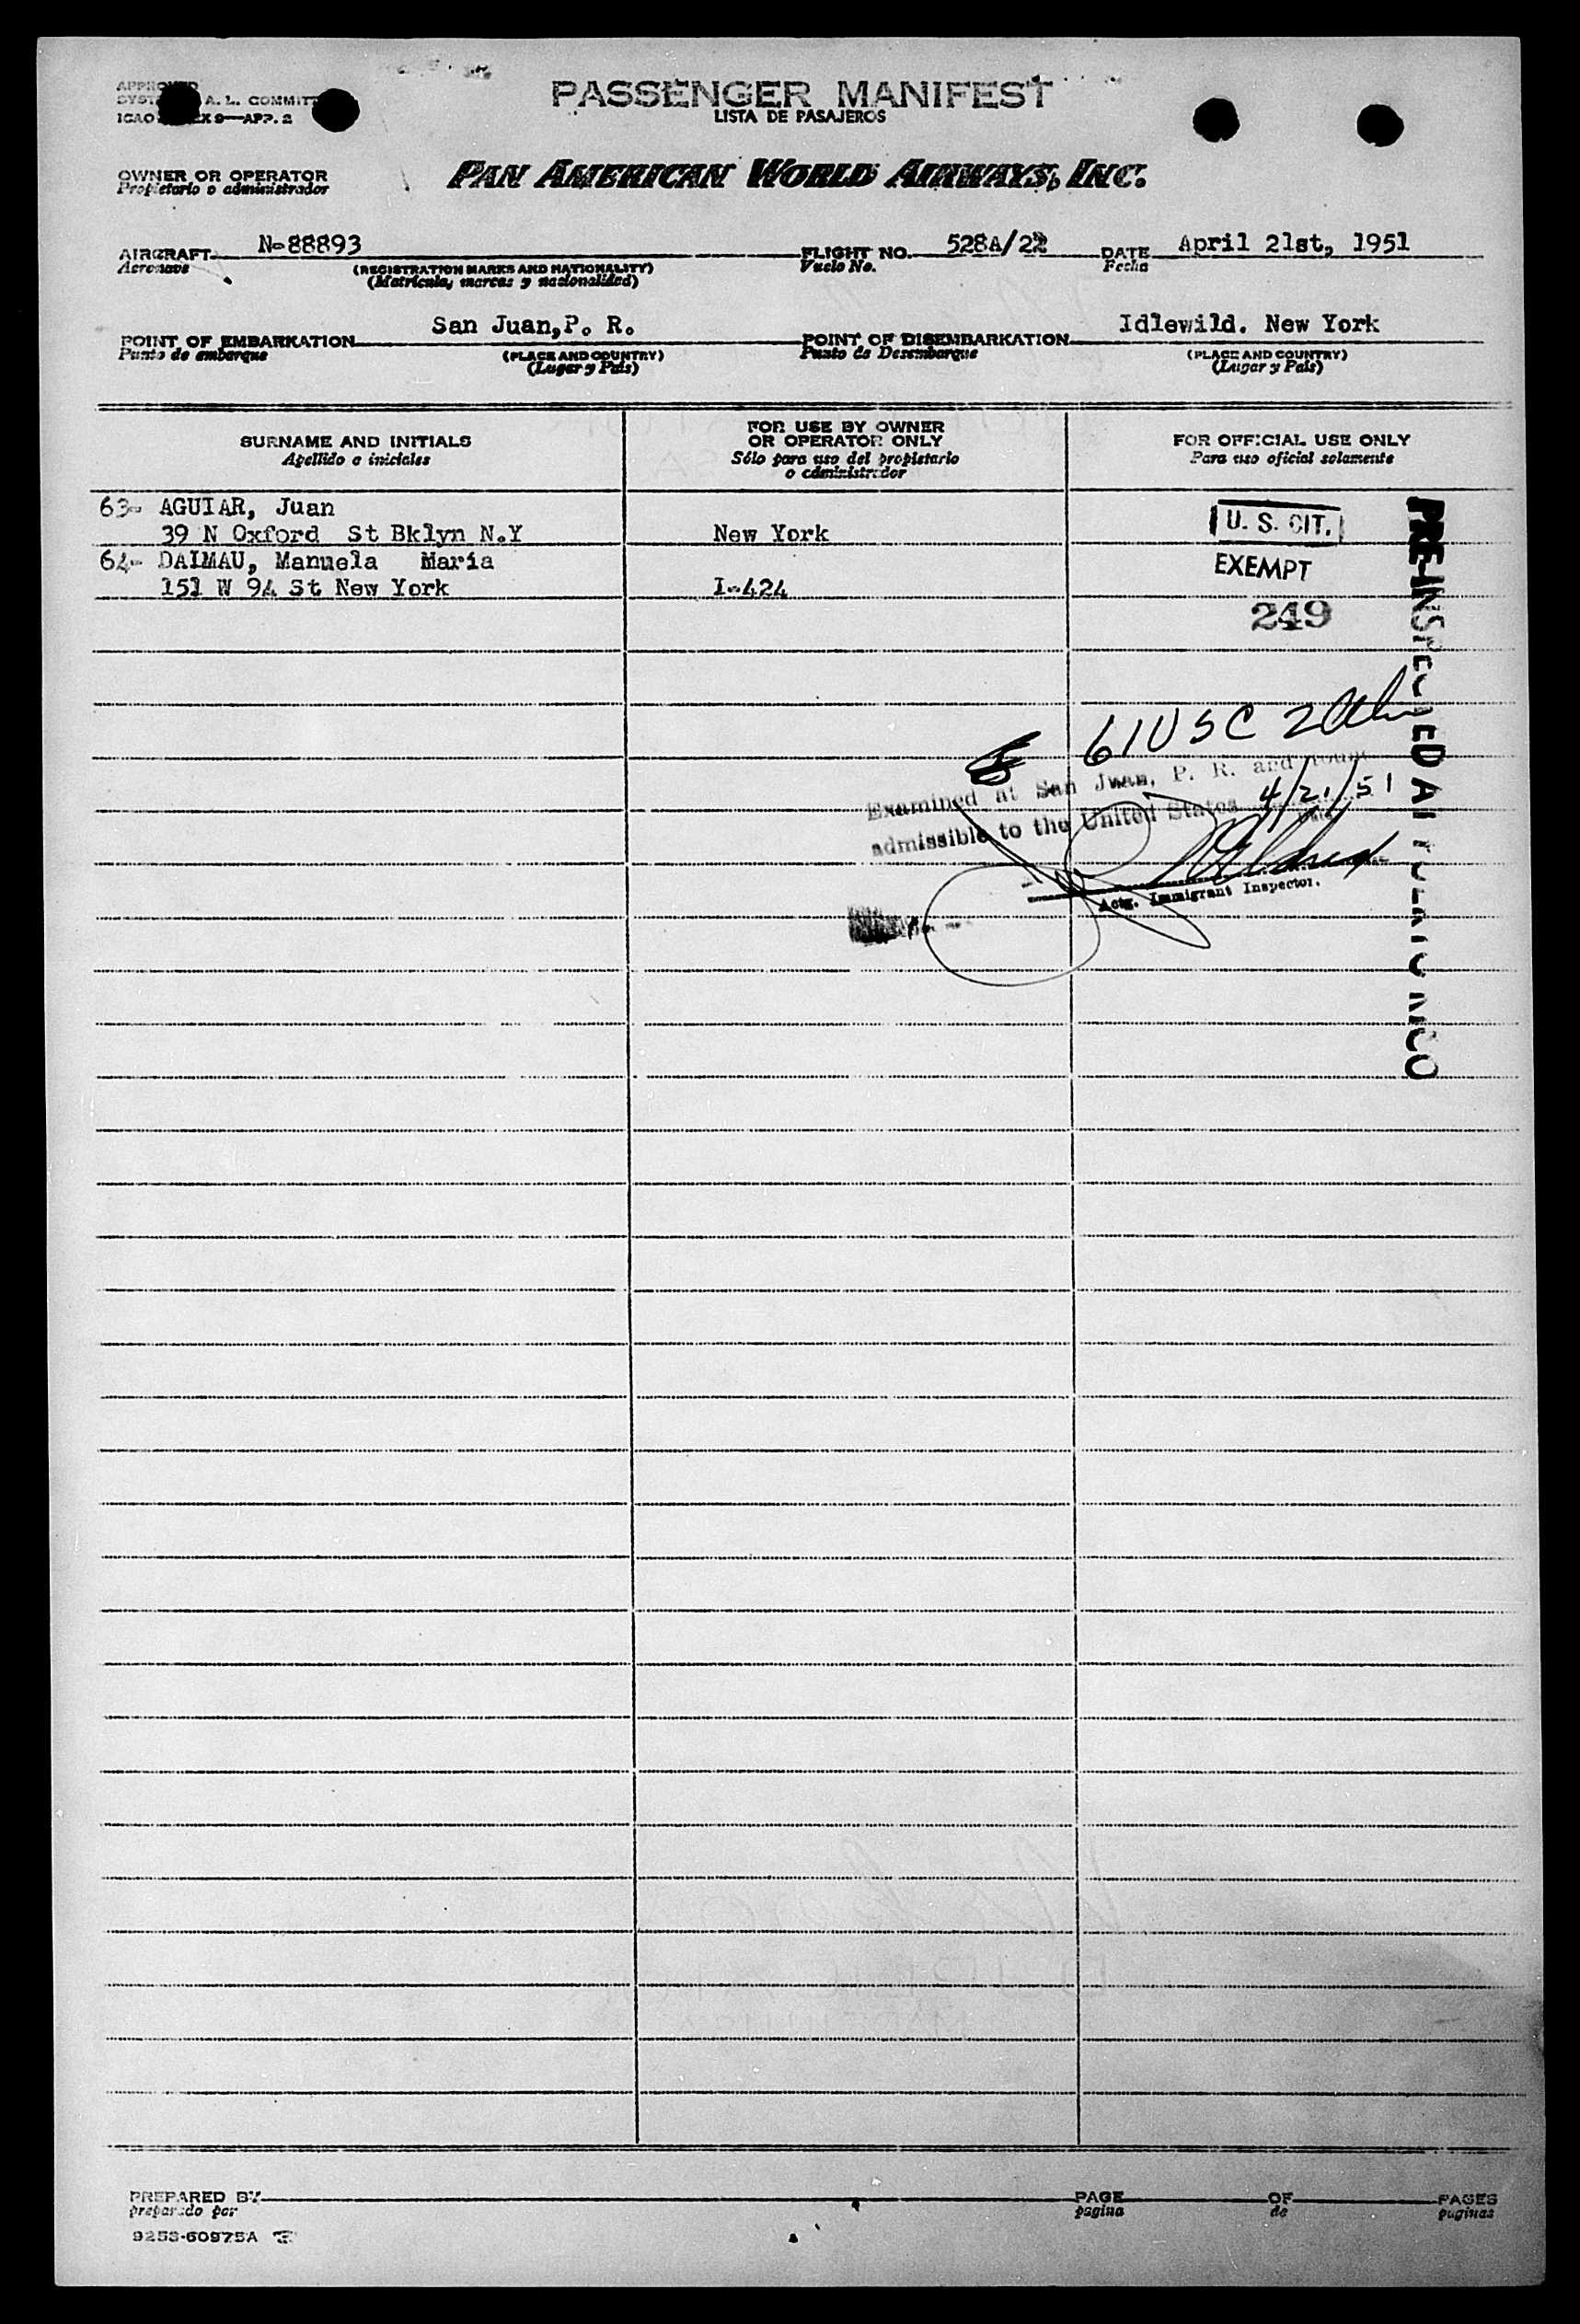 PASSENGER MANIFEST
LISTA DE PASAJEROS
A. L. COMMITT
9—APP. 2
OWNER OR OPERATOR
Propietario o administrador
PAN AMERICAN WORLD AIRWAYS, INC.
AIRCRAFT N-88893 FLIGHT NO. 528A/22 DATE April 21st, 1951
Aeronave (REGISTRATION MARKS AND NATIONALITY) Vuelo No. Fecha
(Matrícula, marcas y nacionalidad)
POINT OF EMBARKATION San Juan,P. R. POINT OF DISEMBARKATION Idlewild. New York
Punto de embarque (PLACE AND COUNTRY) Punto de Desembarque (PLACE AND COUNTRY)
(Lugar y País) (Lugar y País)
SURNAME AND INITIALS
Apellido e iniciales
FOR USE BY OWNER
OR OPERATOR ONLY
Sólo para uso del propietario
o administrador
FOR OFFICIAL USE ONLY
Para uso oficial solamente
63- AGUIAR, Juan
39 N Oxford St Bklyn N.Y New York U. S. CIT.
64- DAIMAU, Manuela Maria EXEMPT
151 W 94 St New York I-424
249
PRE-INSPECTED AT PUERTO RICO
61 USC
Examined at San Juan, P. R. and found
admissible to the United States 4/21/51
Actg. Immigrant Inspector.
PREPARED BY PAGE OF PAGES
preparado por pagina de paginas
9253-60975A